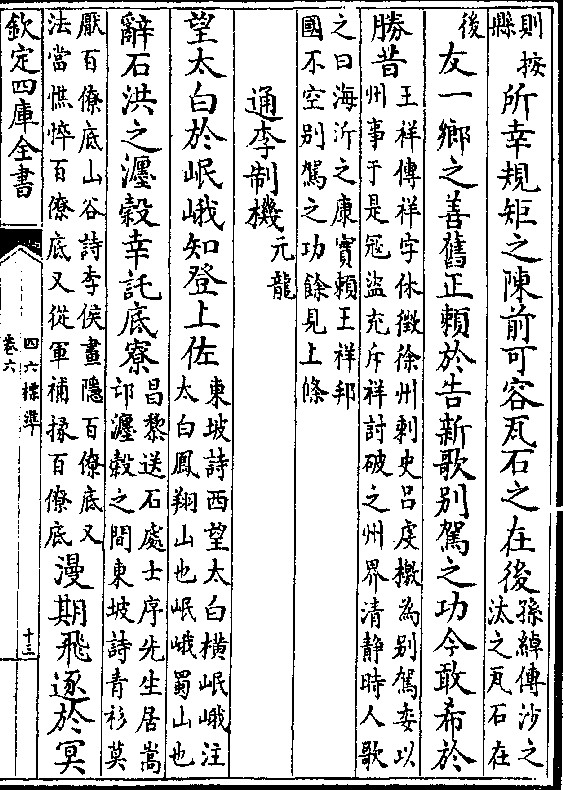 則按
縣
所幸規矩之陳前可容瓦石之在後
孫綽傳沙之
汰之瓦石在
後
友一鄉之善舊正賴於告新歌别駕之功今敢希於
勝昔
王祥傳祥字休徵徐州刺史吕虔檄為别駕委以
州事于是冦盜充斥祥討破之州界清静時人歌
之曰海沂之康實賴王祥邦
國不空别駕之功餘見上條
通李制機
元龍
望太白於岷峨知登上佐
東坡詩西望太白横岷峨注
太白鳳翔山也岷峨蜀山也
辭石洪之瀍榖幸託底寮
昌黎送石處士序先生居嵩
邙瀍榖之間東坡詩青衫莫
厭百僚底山谷詩李侯畫隱百僚底又
法當憔悴百僚底又從軍補掾百僚底
漫期飛逐於冥
欽定四庫全書
四六標準
卷六
十三